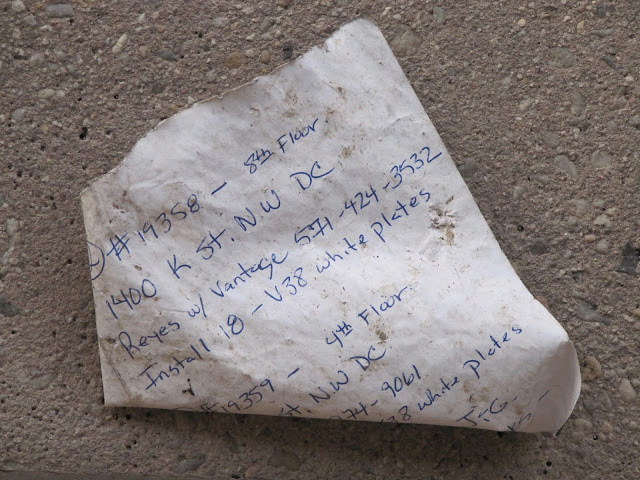 #19358 - 8th Floor
1400 K St. NW DC
Reyes w/ Vantage 571-424-3532
Install 18 - V38 white plates
#19359 - 4th Floor
St. NW DC
74-9061
38 white plates